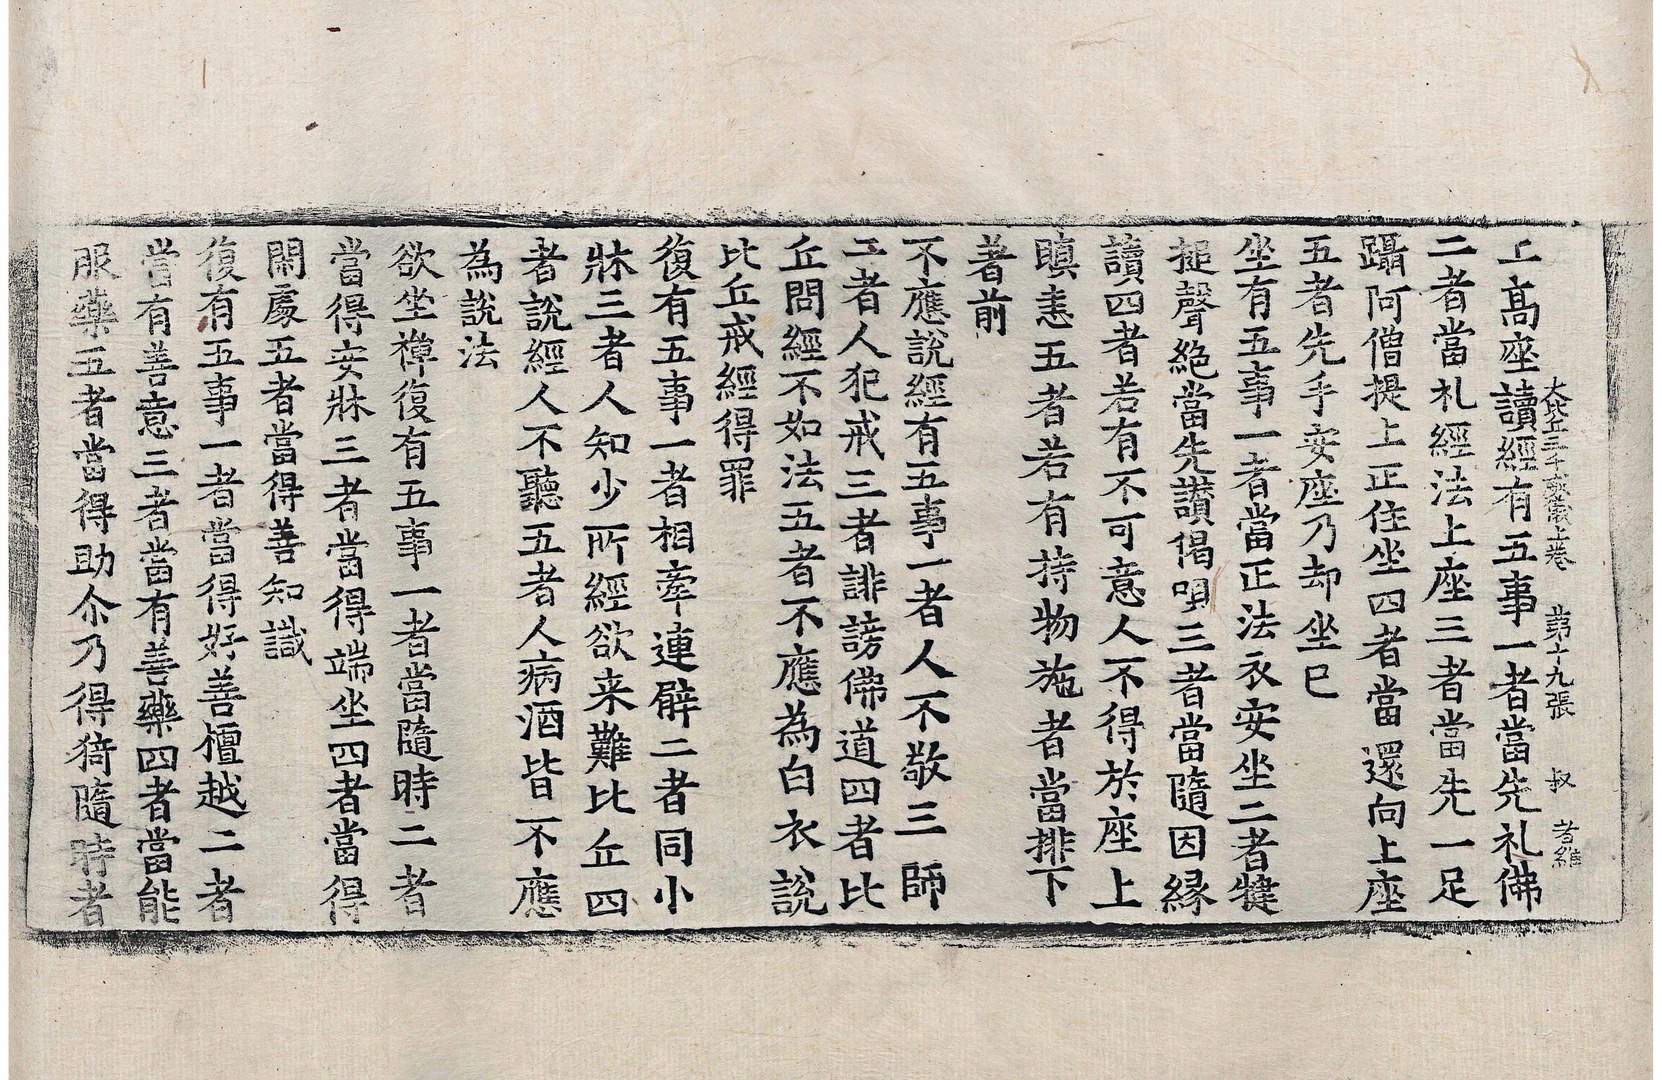 大比丘三千威儀上卷 第十九張 叔 者維
上高座讀經有五事一者當先礼佛
二者當礼經法上座三者當先一足
躡阿僧提上正住坐四者當還向上座
五者先手安座乃却坐已
坐有五事一者當正法衣安坐二者揵
搥聲絕當先讃偈唄三者當隨因緣
讀四者若有不可意人不得於座上
瞋恚五者若有持物施者當排下
著前
不應說經有五事一者人不敬三師
二者人犯戒三者誹謗佛道四者比
丘問經不如法五者不應為白衣說
比丘戒經得罪
復有五事一者相牽連臂二者同小
牀三者人知少所經欲来難比丘四
者說經人不聽五者人病酒皆不應
為說法
欲坐禪復有五事一者當隨時二者
當得安牀三者當得端坐四者當得
閑處五者當得善知識
復有五事一者當得好善檀越二者
當有善意三者當有善藥四者當能
服藥五者當得助尒乃得猗隨時者